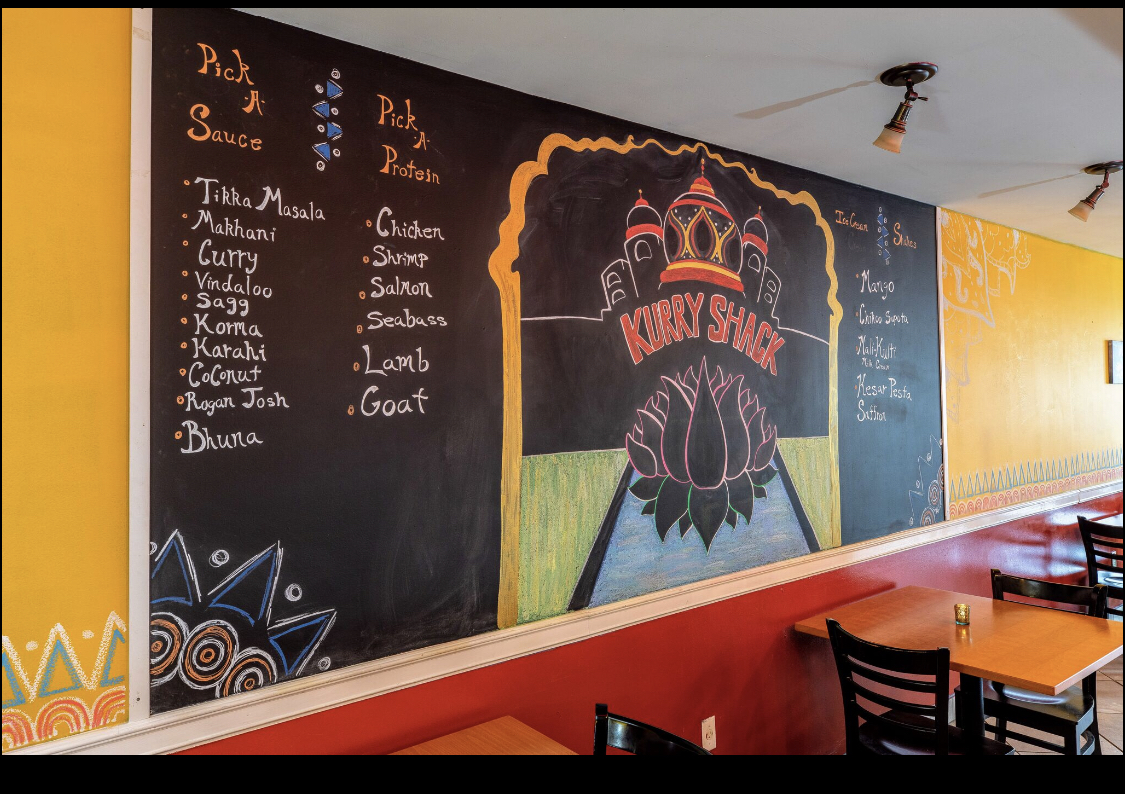 Pick
-A-
Sauce
Tikka Masala
Makhani
Curry
Vindaloo
Sagg
Korma
Karahi
CoConut
Rogan Josh
Bhuna
Pick
-A-
Protein
Chicken
Shrimp
Salmon
Seabass
Lamb
Goat
KURRY SHACK
Ice Cream
Shakes
Mango
Chikoo Saputa
Mali-Kulfi
Milk Cream
Kesar Pesta
Saffron